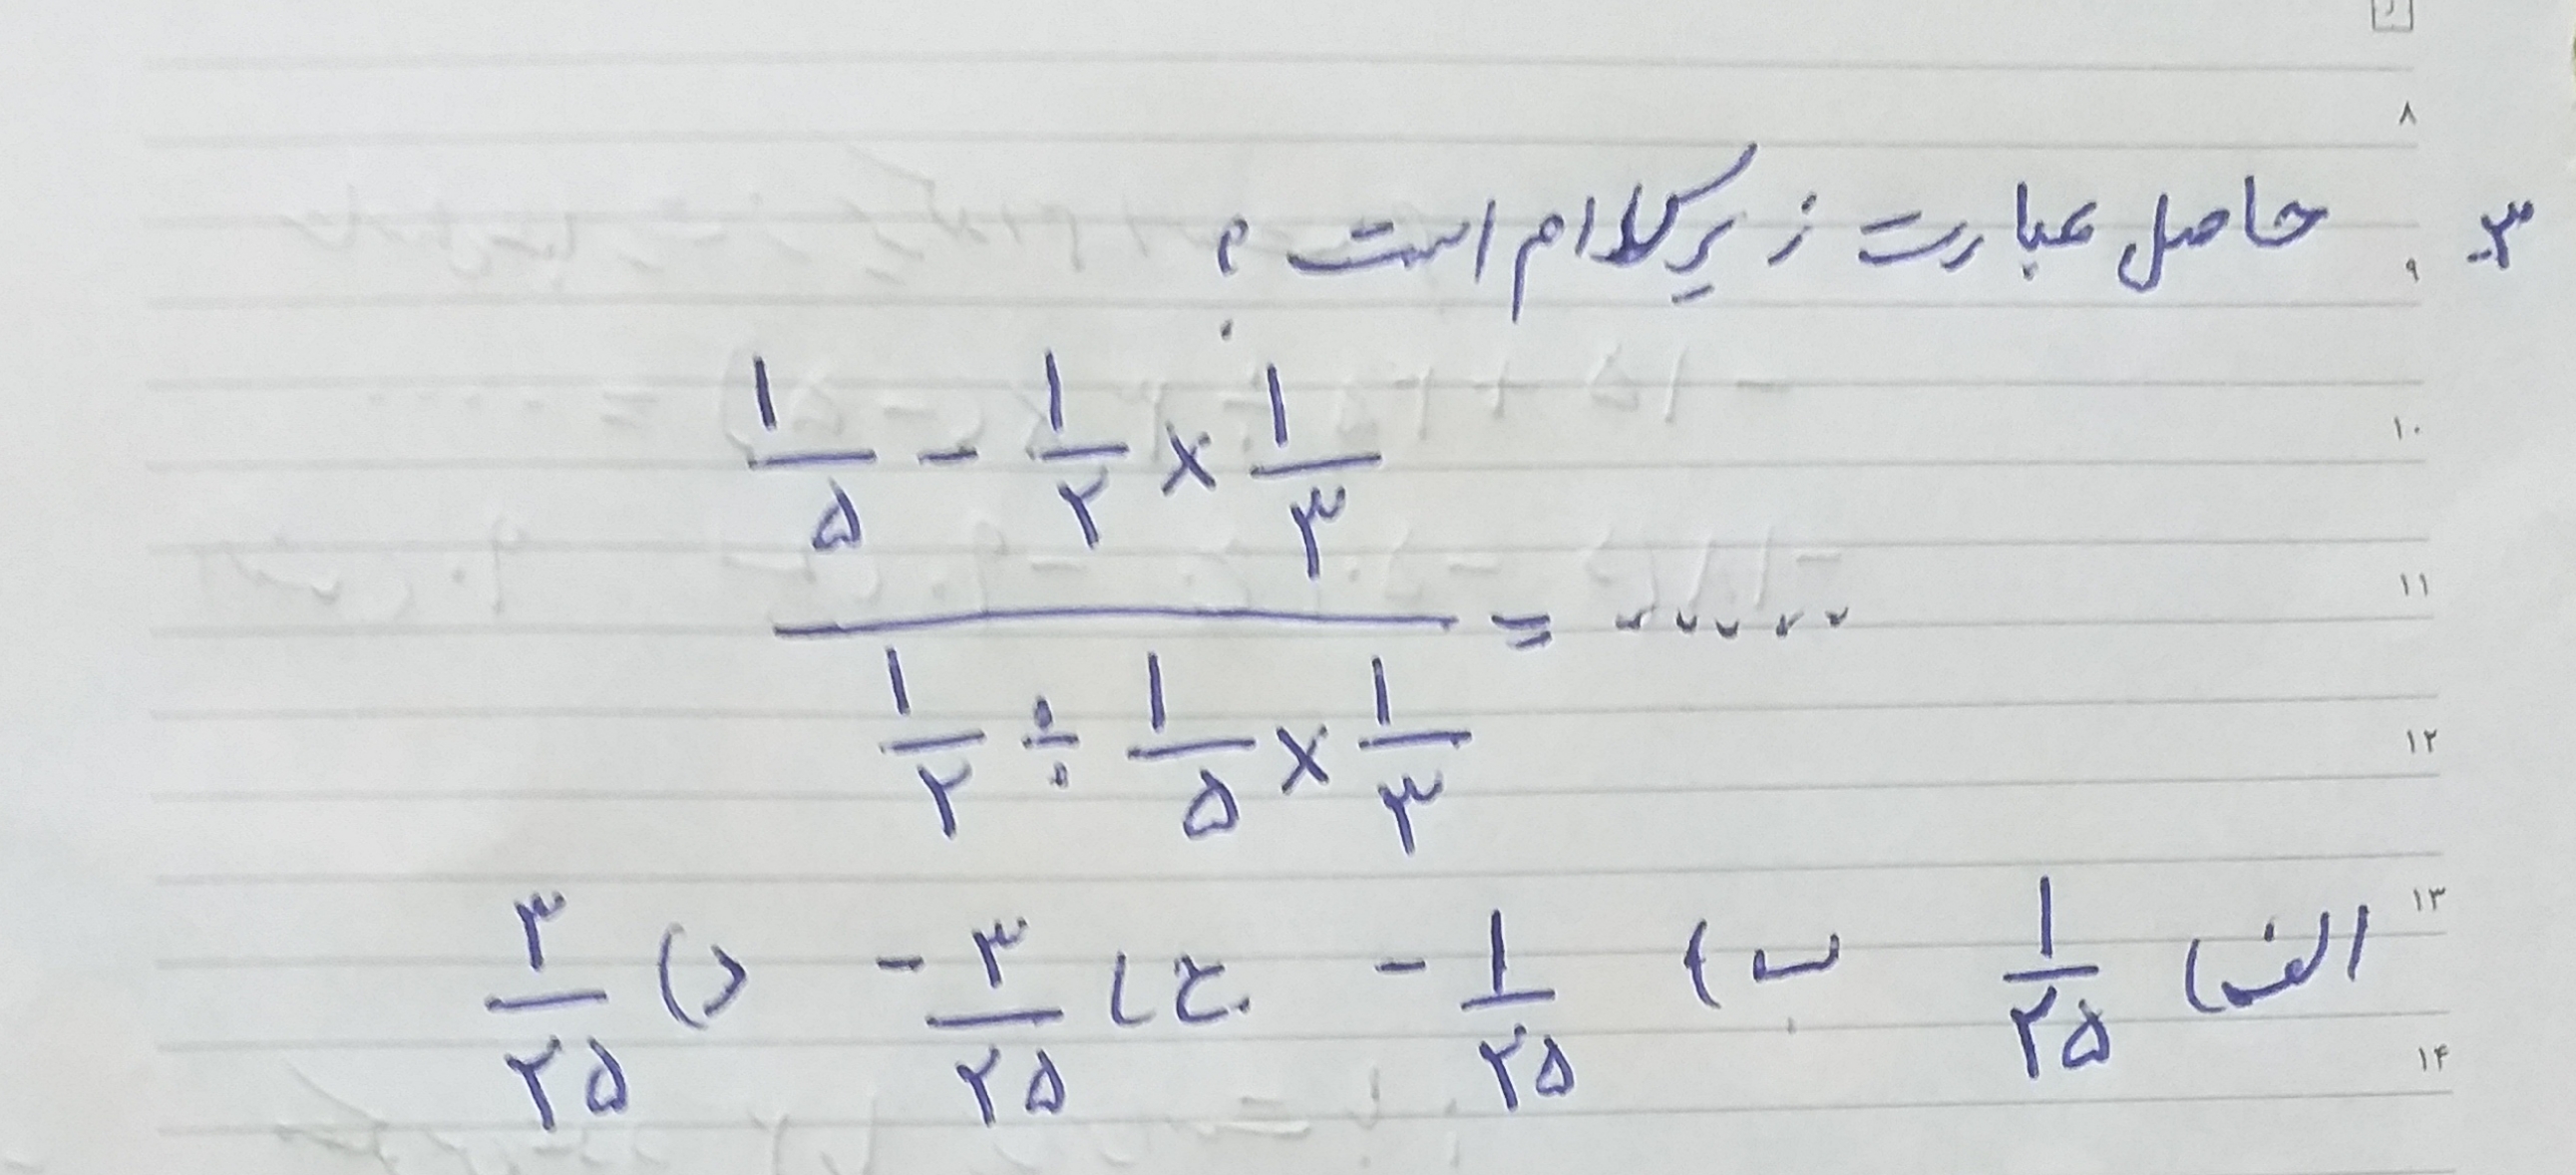 ۸
۳- حاصل عبارت زیر کدام است ؟
۹
۱/۵ - ۱/۲ × ۱/۳
۱۰
۱۱
= .....
۱/۲ ÷ ۱/۵ × ۱/۳
۱۲
۱۳
الف) ۱/۲۵ ب) -۱/۲۵ ج) -۳/۲۵ د) ۳/۲۵
۱۴